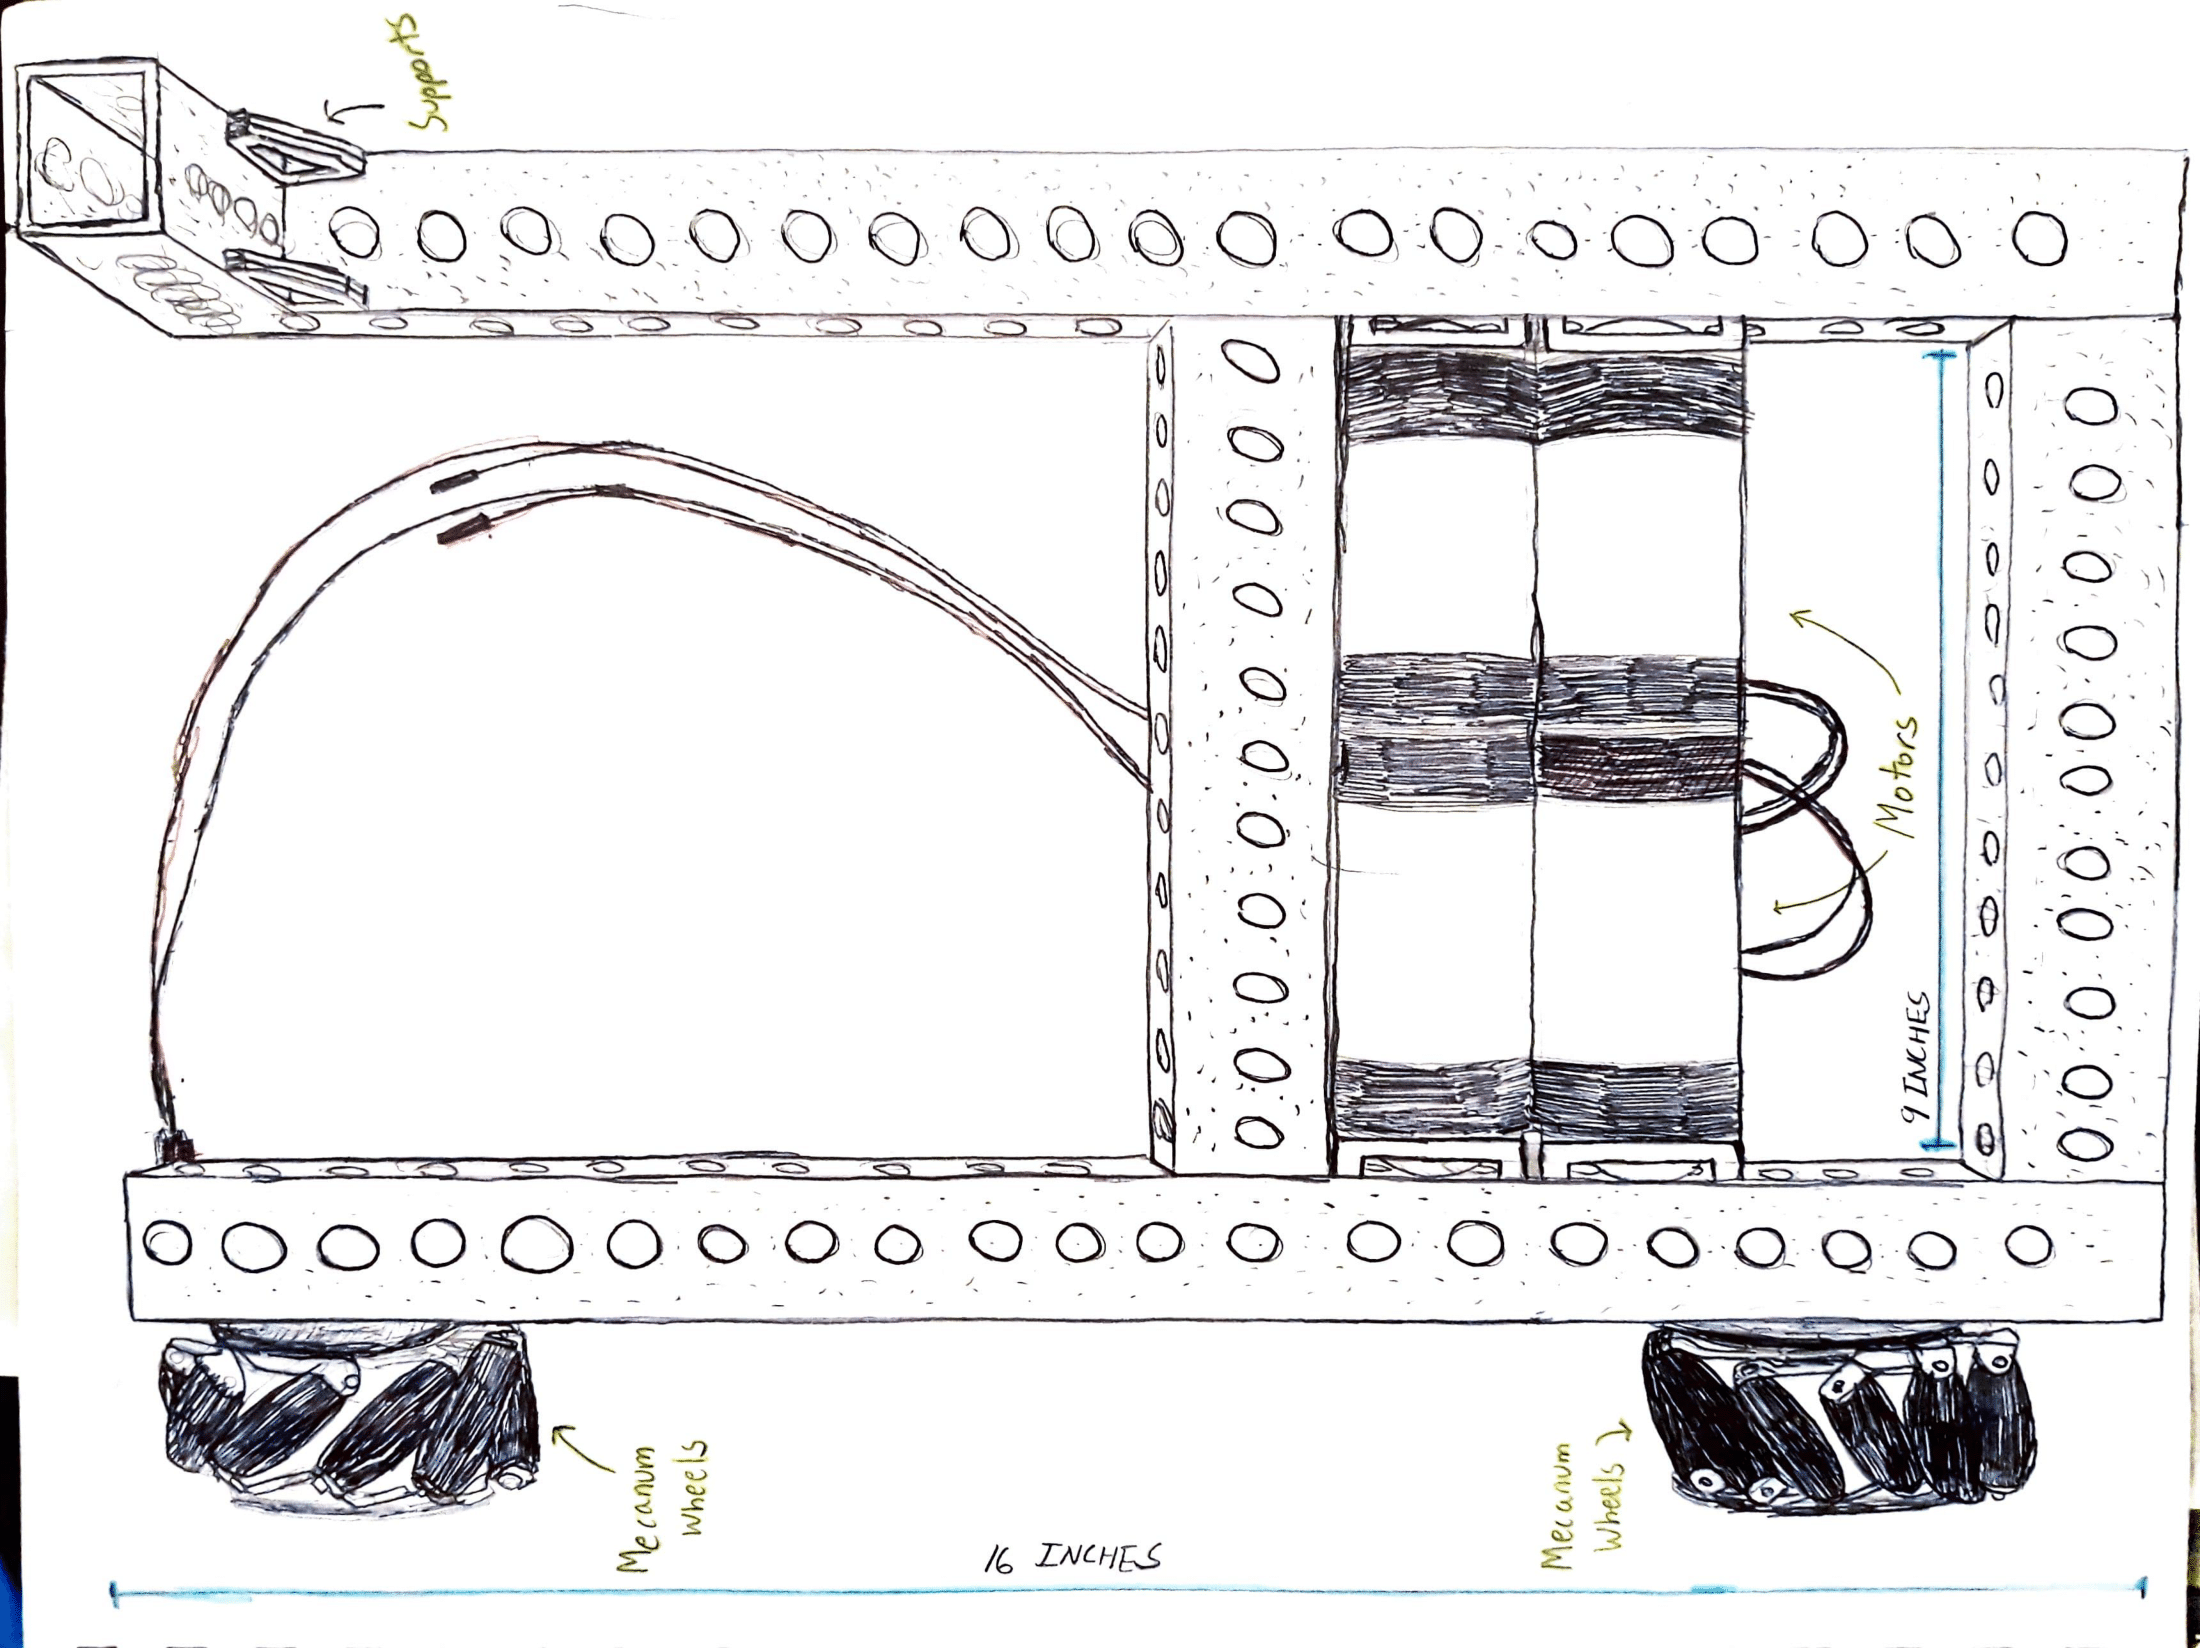 Supports
Motors
9 INCHES
Mecanum
Wheels
Mecanum
Wheels
16 INCHES